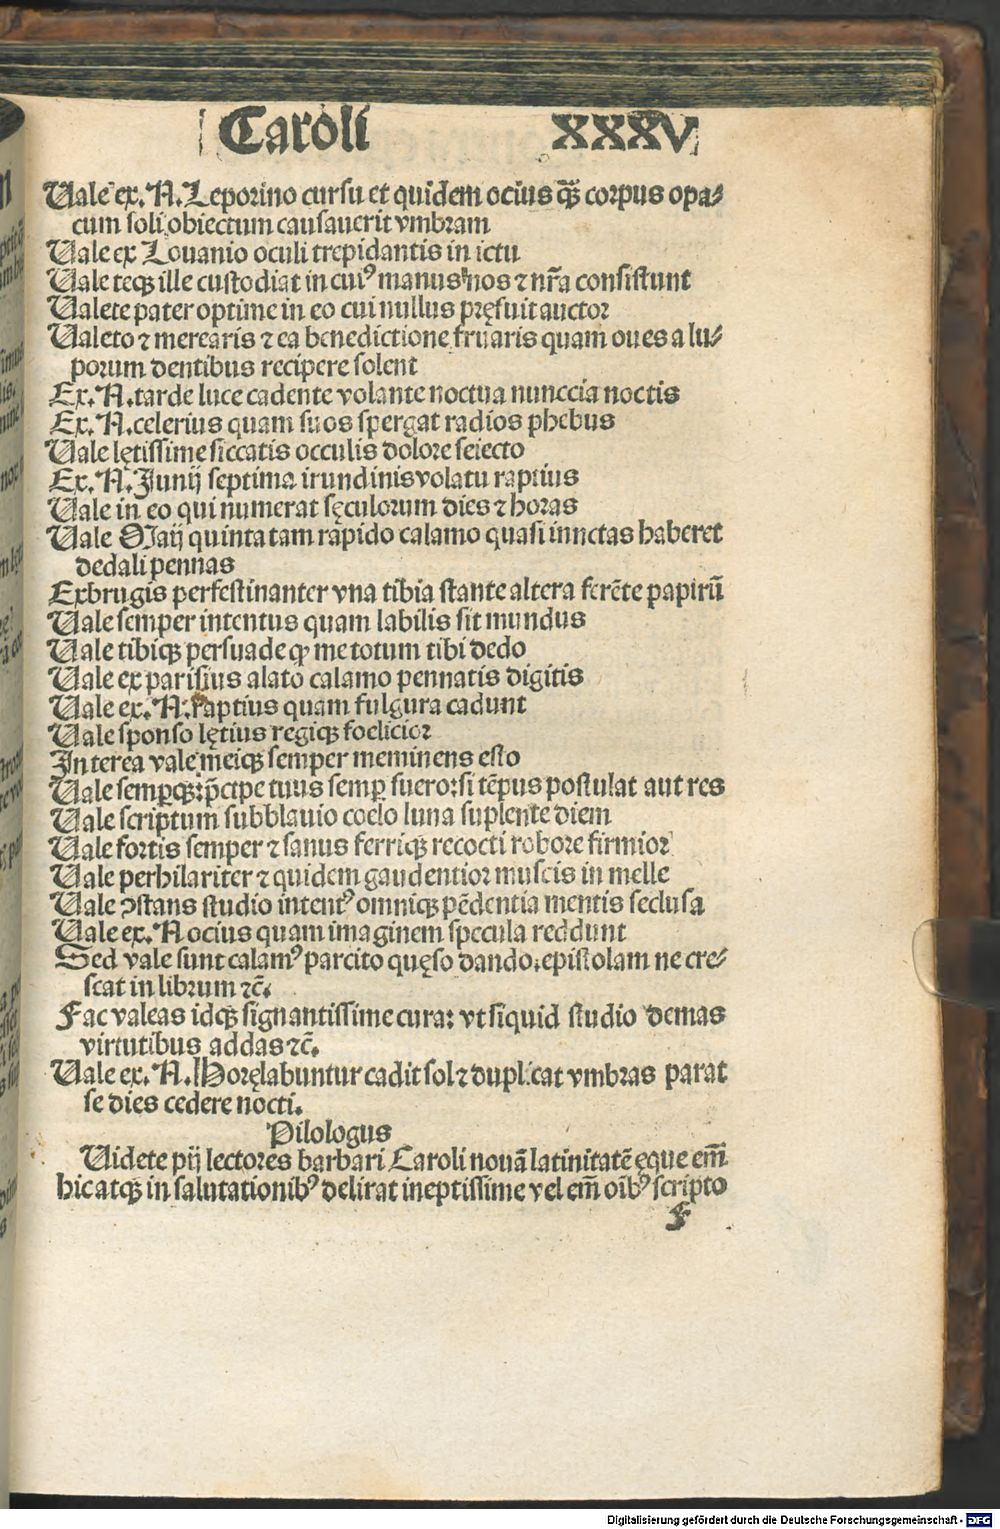 Caroli XXXV
Uale ex. N. Leporino cursu et quidem ocius q̄ꝫ corpus opa⸗
cum soli obiectum causauerit vmbram
Uale ex Louanio oculi trepidantis in ictu
Uale teqꝫ ille custodiat in cuiꝰ manus nos ⁊ nr̃a consistunt
Ualete pater optime in eo cui nullus pręfuit auctor
Ualeto ⁊ merearis ⁊ ea benedictione fruaris quam oues a lu⸗
porum dentibus recipere solent
Ex. N. tarde luce cadente volante noctua nunccia noctis
Ex. N. celerius quam suos spergat radios phebus
Uale lętissime siccatis occulis dolore seiecto
Ex. N. Junij septima irundinis volatu raptius
Uale in eo qui numerat sęculorum dies ⁊ horas
Uale Maij quinta tam rapido calamo quasi innctas haberet
dedali pennas
Exbrugis perfestinanter vna tibia stante altera ferẽte papirũ
Uale semper intentus quam labilis sit mundus
Uale tibiqꝫ persuade ꝙ me totum tibi dedo
Uale ex parisius alato calamo pennatis digitis
Uale ex. N. raptius quam fulgura cadunt
Uale sponso lętius regiqꝫ foelicior
Interea vale meiqꝫ semper meminens esto
Uale semꝑqꝫ: p̄cipe tuus semꝑ fuero: si tẽpus postulat aut res
Uale scriptum subblauio coelo luna suplente diem
Uale fortis semper ⁊ sanus ferriqꝫ recocti robore firmior
Uale perhilariter ⁊ quidem gaudentior muscis in melle
Uale ꝯstans studio intentꝰ omniqꝫ pẽdentia mentis seclusa
Uale ex. N ocius quam imaginem specula reddunt
Sed vale sunt calamꝰ parcito quęso dando. epistolam ne cre⸗
scat in librum ⁊c̃.
Fac valeas idqꝫ signantissime cura: vt siquid studio demas
virtutibus addas ⁊c̃.
Uale ex. N. Horę labuntur cadit sol ⁊ duplicat vmbras parat
se dies cedere nocti.
Pilologus
Uidete pij lectores barbari Caroli nouã latinitatẽ ęque em̃
hic atqꝫ in salutationibꝰ delirat ineptissime vel em̃ oĩbꝰ scripto
F
Digitalisierung gefördert durch die Deutsche Forschungsgemeinschaft - DFG